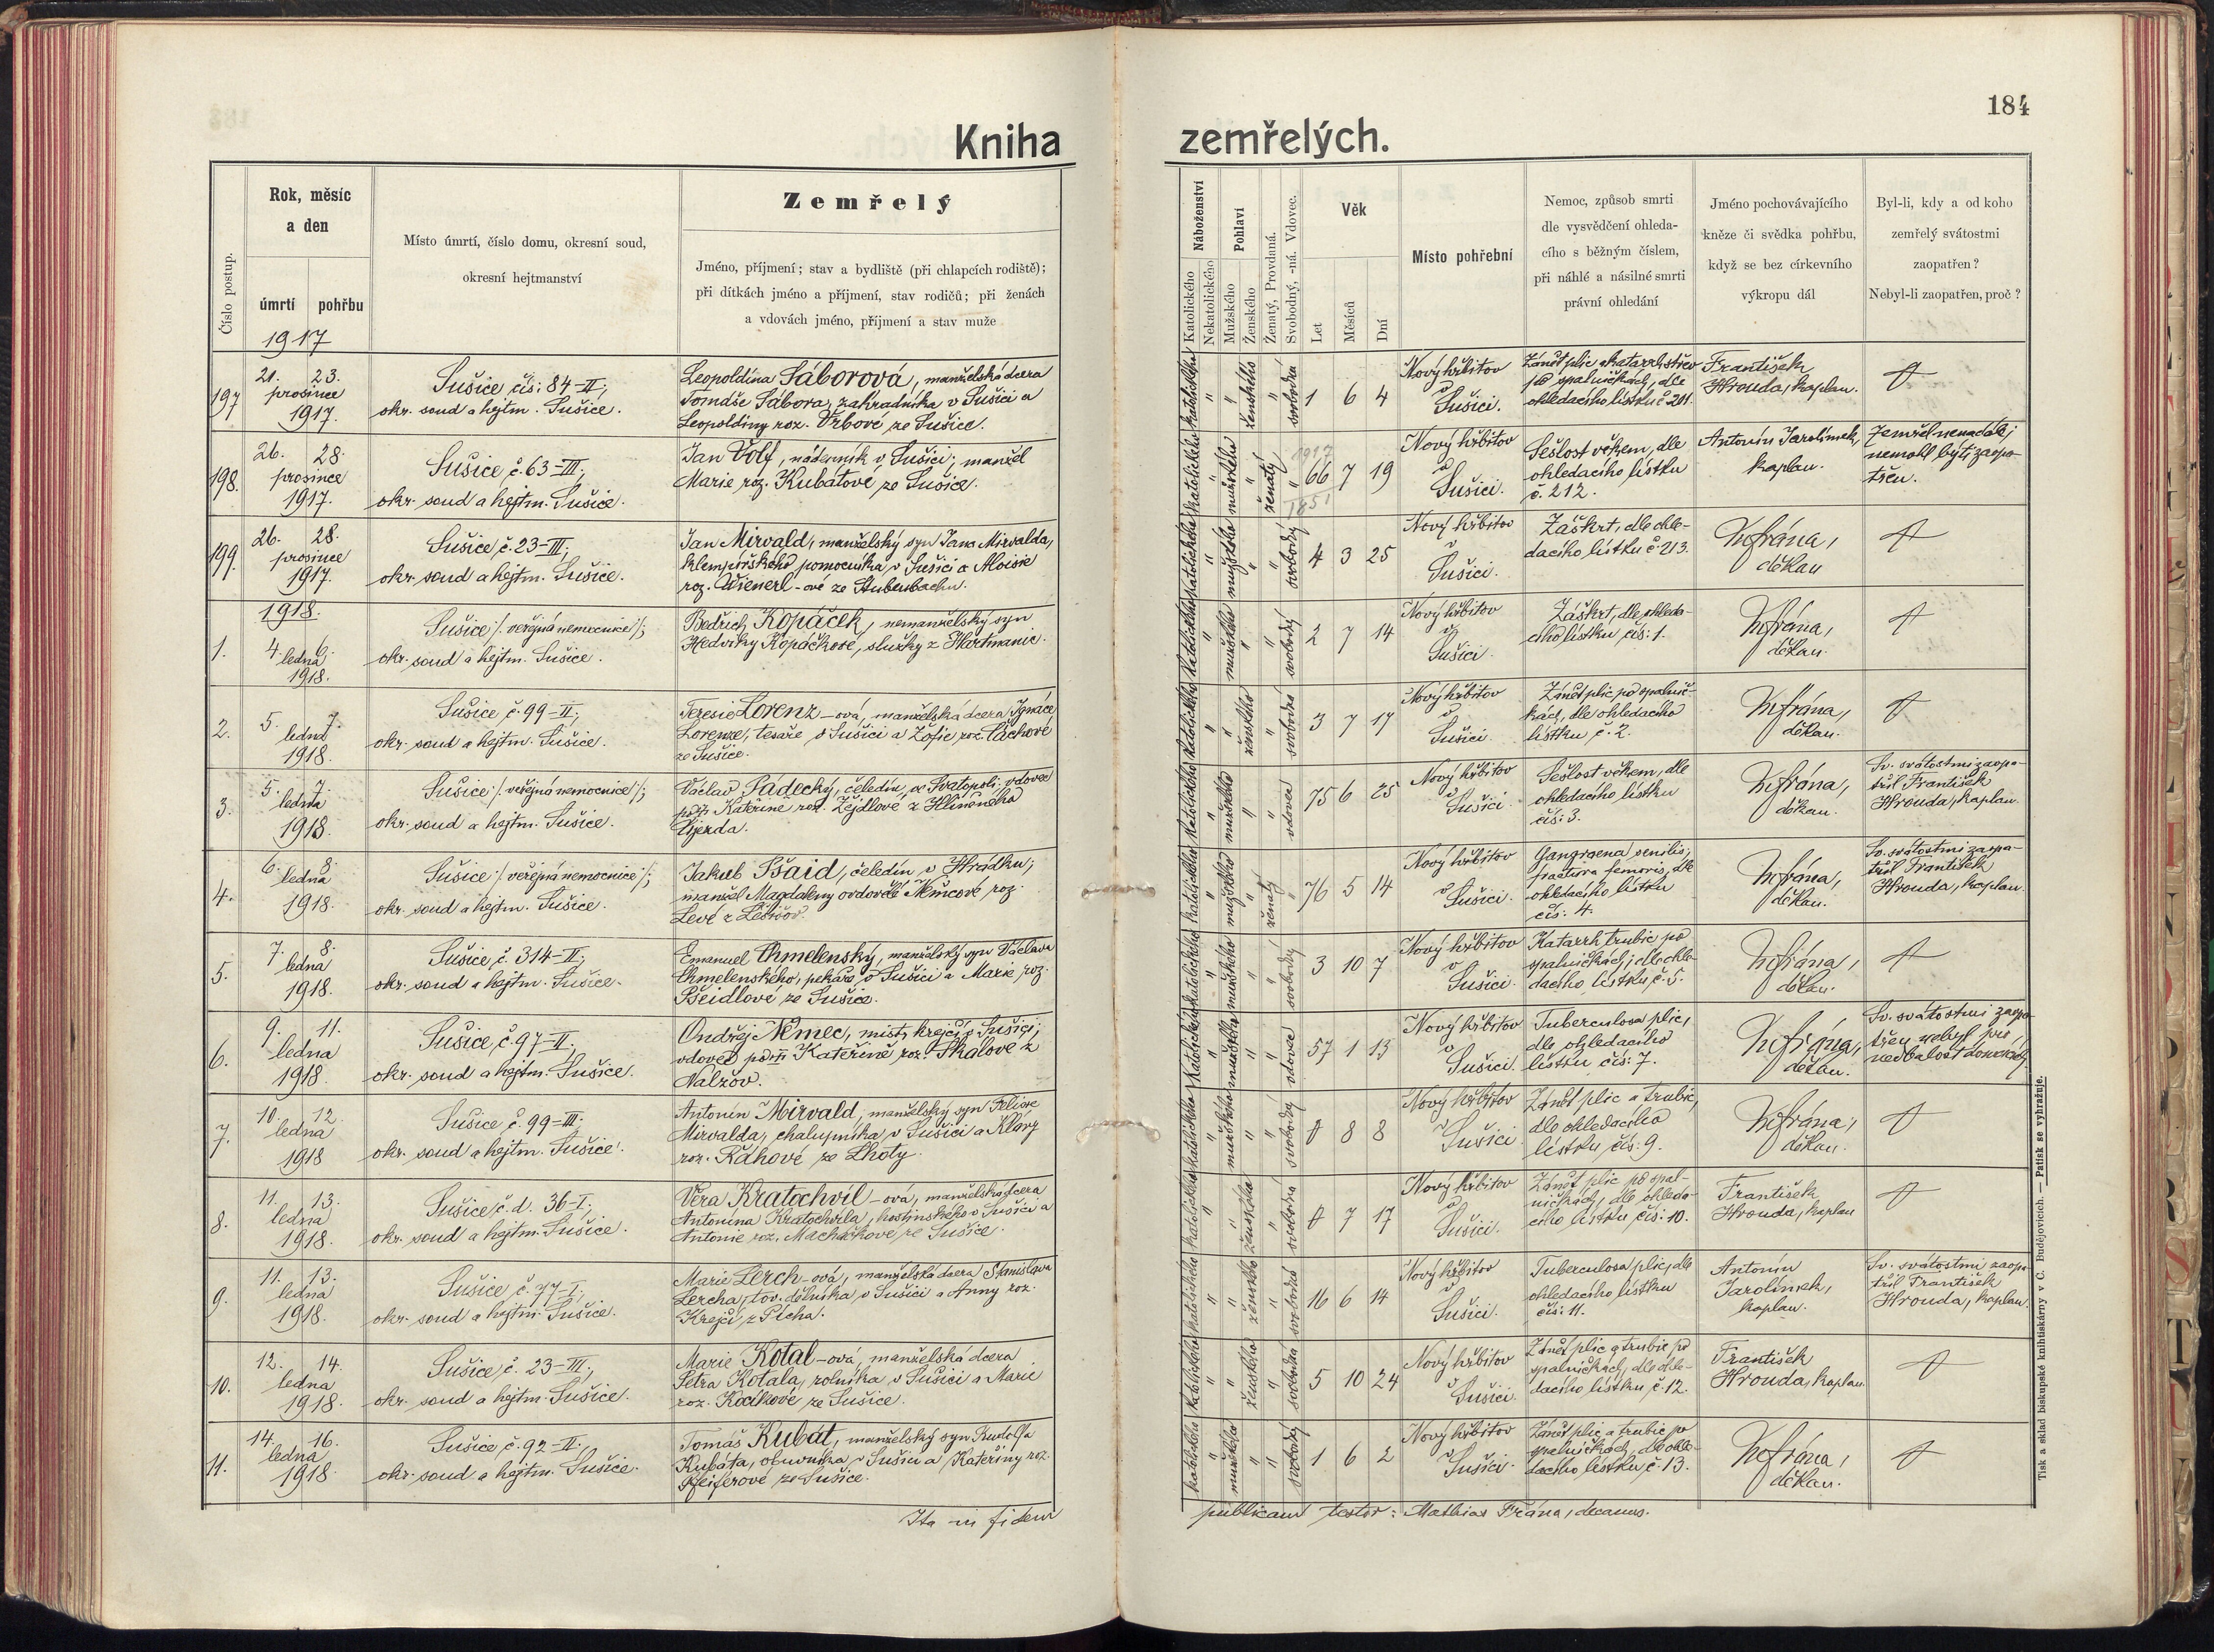 184
Kniha zemřelých.
Číslo postup.
Rok, měsíc
a den
úmrtí
pohřbu
Místo úmrtí, číslo domu, okresní soud,
okresní hejtmanství
Zemřelý
Jméno, příjmení; stav a bydliště (při chlapcích rodiště);
při dítkách jméno a příjmení, stav rodičů; při ženách
a vdovách jméno, příjmení a stav muže
Náboženství
Katolického
Nekatolického
Pohlaví
Mužského
Ženského
Ženatý, Provdaná.
Svobodný, -ná. Vdovec.
Věk
Let
Měsíců
Dní
Místo pohřební
Nemoc, způsob smrti
dle vysvědčení ohleda-
cího s běžným číslem,
při náhlé a násilné smrti
právní ohledání
Jméno pochovávajícího
kněze či svědka pohřbu,
když se bez církevního
výkropu dál
Byl-li, kdy a od koho
zemřelý svátostmi
zaopatřen?
Nebyl-li zaopatřen, proč?
1917
197
21. 23.
prosince
1917.
Sušice, čís: 84-II;
okr. soud a hejtm. Sušice.
Leopoldina Sáborová, manželská dcera
Tomáše Sábora, zahradníka v Sušici a
Leopoldiny roz. Vrbové ze Sušice.
katolického
ženského
svobodná
1 6 4
Nový hřbitov
v
Sušici.
Zánět plic a katarrh střev
po spalničkách, dle
ohledacího lístku č 211.
František
Hrouda, kaplan.
198.
26. 28.
prosince
1917.
Sušice, č. 63-III;
okr. soud a hejtm. Sušice.
Jan Volf, nádenník v Sušici; manžel
Marie roz. Kubátové ze Sušice.
katolického
mužského
ženatý
1917
66 7 19
1851
Nový hřbitov
v
Sušici.
Sešlost věkem, dle
ohledacího lístku
č. 212.
Antonín Jarolímek,
kaplan.
Zemřel nenadále;
nemohl býti zaopa-
třen.
199.
26. 28.
prosince
1917.
Sušice, č. 23-III;
okr. soud a hejtm. Sušice.
Jan Mirvald, manželský syn Jana Mirvalda,
klempířského pomocníka v Sušici a Aloisie
roz. Wienerl-ové ze Stubenbachu.
katolického
mužského
svobodný
4 3 25
Nový hřbitov
v
Sušici.
Záškrt, dle ohle-
dacího lístku č 213.
děkan
1918.
1.
4. 6.
ledna
1918.
Sušice /: veřejná nemocnice :/;
okr. soud a hejtm. Sušice.
Bedřich Kopáček, nemanželský syn
Hedviky Kopáčkové, služky z Hartmanic.
katolického
mužského
svobodný
2 7 14
Nový hřbitov
v
Sušici.
Záškrt, dle ohleda-
cího lístku čís: 1.
děkan.
2.
5. 7.
ledna
1918.
Sušice, č. 99-II;
okr. soud a hejtm. Sušice.
Terezie Lorenz-ová, manželská dcera Ignáce
Lorenze, tesaře v Sušici a Žofie roz. Páchové
ze Sušice.
katolického
ženského
svobodná
3 7 17
Nový hřbitov
v
Sušici.
Zánět plic po spalnič-
kách, dle ohledacího
lístku č. 2.
děkan.
3.
5. 7.
ledna
1918.
Sušice /: veřejná nemocnice :/;
okr. soud a hejtm. Sušice.
Václav Pádecký, čeledín, ze Svatopolí; vdovec
Kateřině roz. Zejdlové z Hliněného
Újezda.
katolického
mužského
vdovec
75 6 25
Nový hřbitov
v
Sušici.
Sešlost věkem, dle
ohledacího lístku
čís: 3.
děkan.
Sv. svátostmi zaopa-
třil František
Hrouda, kaplan.
4.
6. 8.
ledna
1918.
Sušice /: veřejná nemocnice :/;
okr. soud a hejtm. Sušice.
Jakub Pšaid, čeledín v Hrádku;
manžel Magdaleny ovdovělé Němcové roz.
katolického
mužského
ženatý
76 5 14
Nový hřbitov
v
Sušici.
Gangraena senilis,
fractura femoris, dle
ohledacího lístku
čís: 4.
děkan.
Sv. svátostmi zaopa-
třil František
Hrouda, kaplan.
5.
7. 8.
ledna
1918.
Sušice, č. 314-II;
okr. soud a hejtm. Sušice.
Emanuel Chmelenský, manželský syn Václava
Chmelenského, pekaře v Sušici a Marie roz.
Pšeidlové ze Sušice.
katolického
mužského
svobodný
3 10 7
Nový hřbitov
v
Sušici.
Katarrh trubic po
spalničkách; dle ohle-
dacího lístku, č. 5.
děkan.
6.
9. 11.
ledna
1918.
Sušice, č. 97-II;
okr. soud a hejtm. Sušice.
Ondřej Němec, mistr krejčí v Sušici;
vdovec po Kateřině roz. Skálové z
Nalžov.
katolického
mužského
vdovec
57 1 13
Nový hřbitov
v
Sušici.
Tuberculosa plic,
dle ohledacího
lístku čís: 7.
děkan.
Sv. svátostmi zaopa-
třen nebyl pro
nedbalost domácích.
7.
10. 12.
ledna
1918
Sušice č. 99-III;
okr. soud a hejtm. Sušice.
Antonín Mirvald, manželský syn Felixe
Mirvalda, chalupníka v Sušici a Kláry
roz. Řáhové ze Lhoty.
katolického
mužského
svobodný
0 8 8
Nový hřbitov
v
Sušici
Zánět plic a trubic,
dle ohledacího
lístku čís: 9.
děkan.
8.
11. 13.
ledna
1918.
Sušice, č.d. 36-I;
okr. soud a hejtm. Sušice.
Věra Kratochvíl-ová, manželská dcera
Antonína Kratochvíla, hostinského v Sušici a
Antonie roz. Macháčkové ze Sušice.
katolického
ženského
svobodná
0 7 17
Nový hřbitov
v
Sušici.
Zánět plic po spal-
ničkách, dle ohleda-
cího lístku čís: 10.
František
Hrouda, kaplan
9.
11. 13.
ledna
1918.
Sušice č. 77-I;
okr. soud a hejtm. Sušice.
Marie Lerch-ová, manželská dcera Stanislava
Lercha, tov. dělníka, v Sušici a Anny roz.
Krejčí z Plcha.
katolického
ženského
svobodná
16 6 14
Nový hřbitov
v
Sušici.
Tuberculosa plic, dle
ohledacího lístku
čís: 11.
Antonín
Jarolímek,
kaplan.
Sv. svátostmi zaopa-
třil František
Hrouda, kaplan.
10.
12. 14.
ledna
1918.
Sušice, č. 23-III;
okr. soud a hejtm. Sušice.
Marie Kotal-ová, manželská dcera
Petra Kotala, rolníka v Sušici a Marie
roz. Kočkové ze Sušice.
katolického
ženského
svobodná
5 10 24
Nový hřbitov
v
Sušici.
Zánět plic a trubic po
spalničkách, dle ohle-
dacího lístku č. 12.
František
Hrouda, kaplan.
11.
14. 16.
ledna
1918
Sušice, č. 92-II;
okr. soud a hejtm. Sušice.
Tomáš Kubát, manželský syn Rudolfa
Kubáta, obuvníka v Sušici a Kateřiny roz.
Pfeiferové ze Sušice.
katolického
mužského
svobodný
1 6 2
Nový hřbitov
v
Sušici.
Zánět plic a trubic po
spalničkách, dle ohle-
dacího lístku č. 13.
děkan.
Ita in fidem publicam testor: Mathias Frána, decanus.
Tisk a sklad biskupské knihtiskárny v C. Budějovicích. — Patisk se vyhražuje.